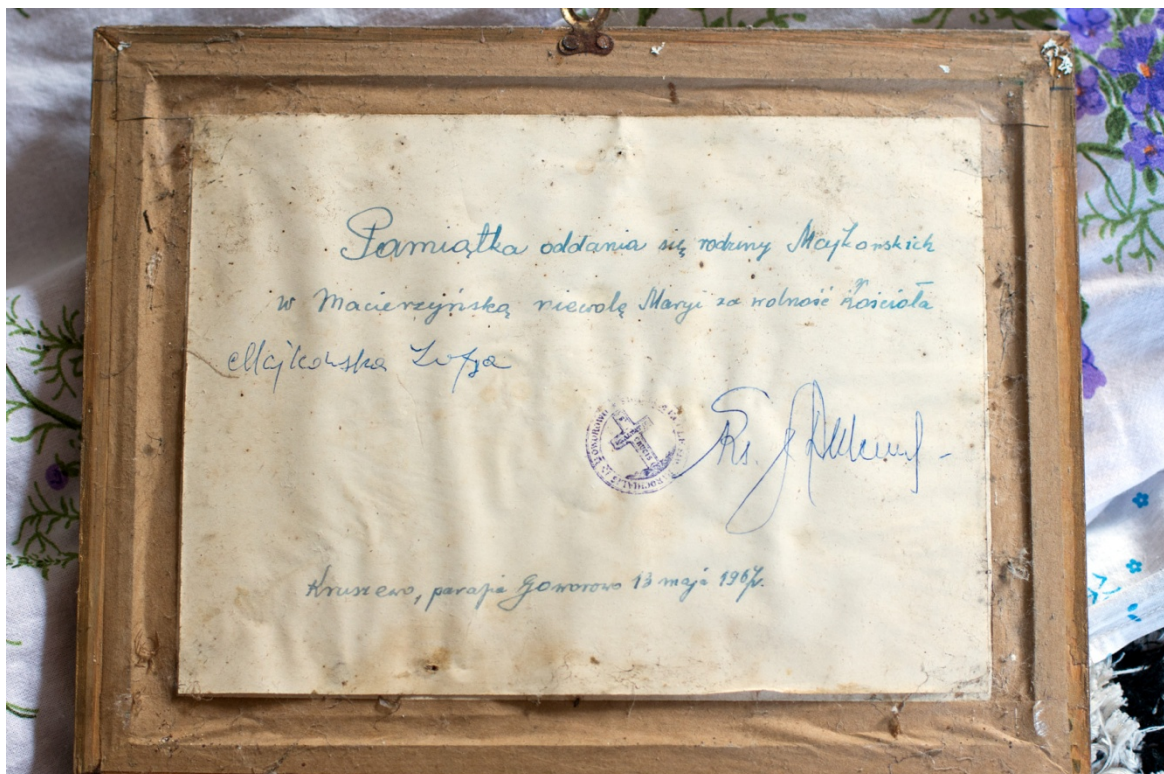 Pamiątka oddania się rodziny Majkowskich
w Macierzyńską niewolę Maryi za wolność Kościoła
Majkowska Zofja
Ks. J.
Kruszewo, parafia Goworowo 13 maja 1967r.